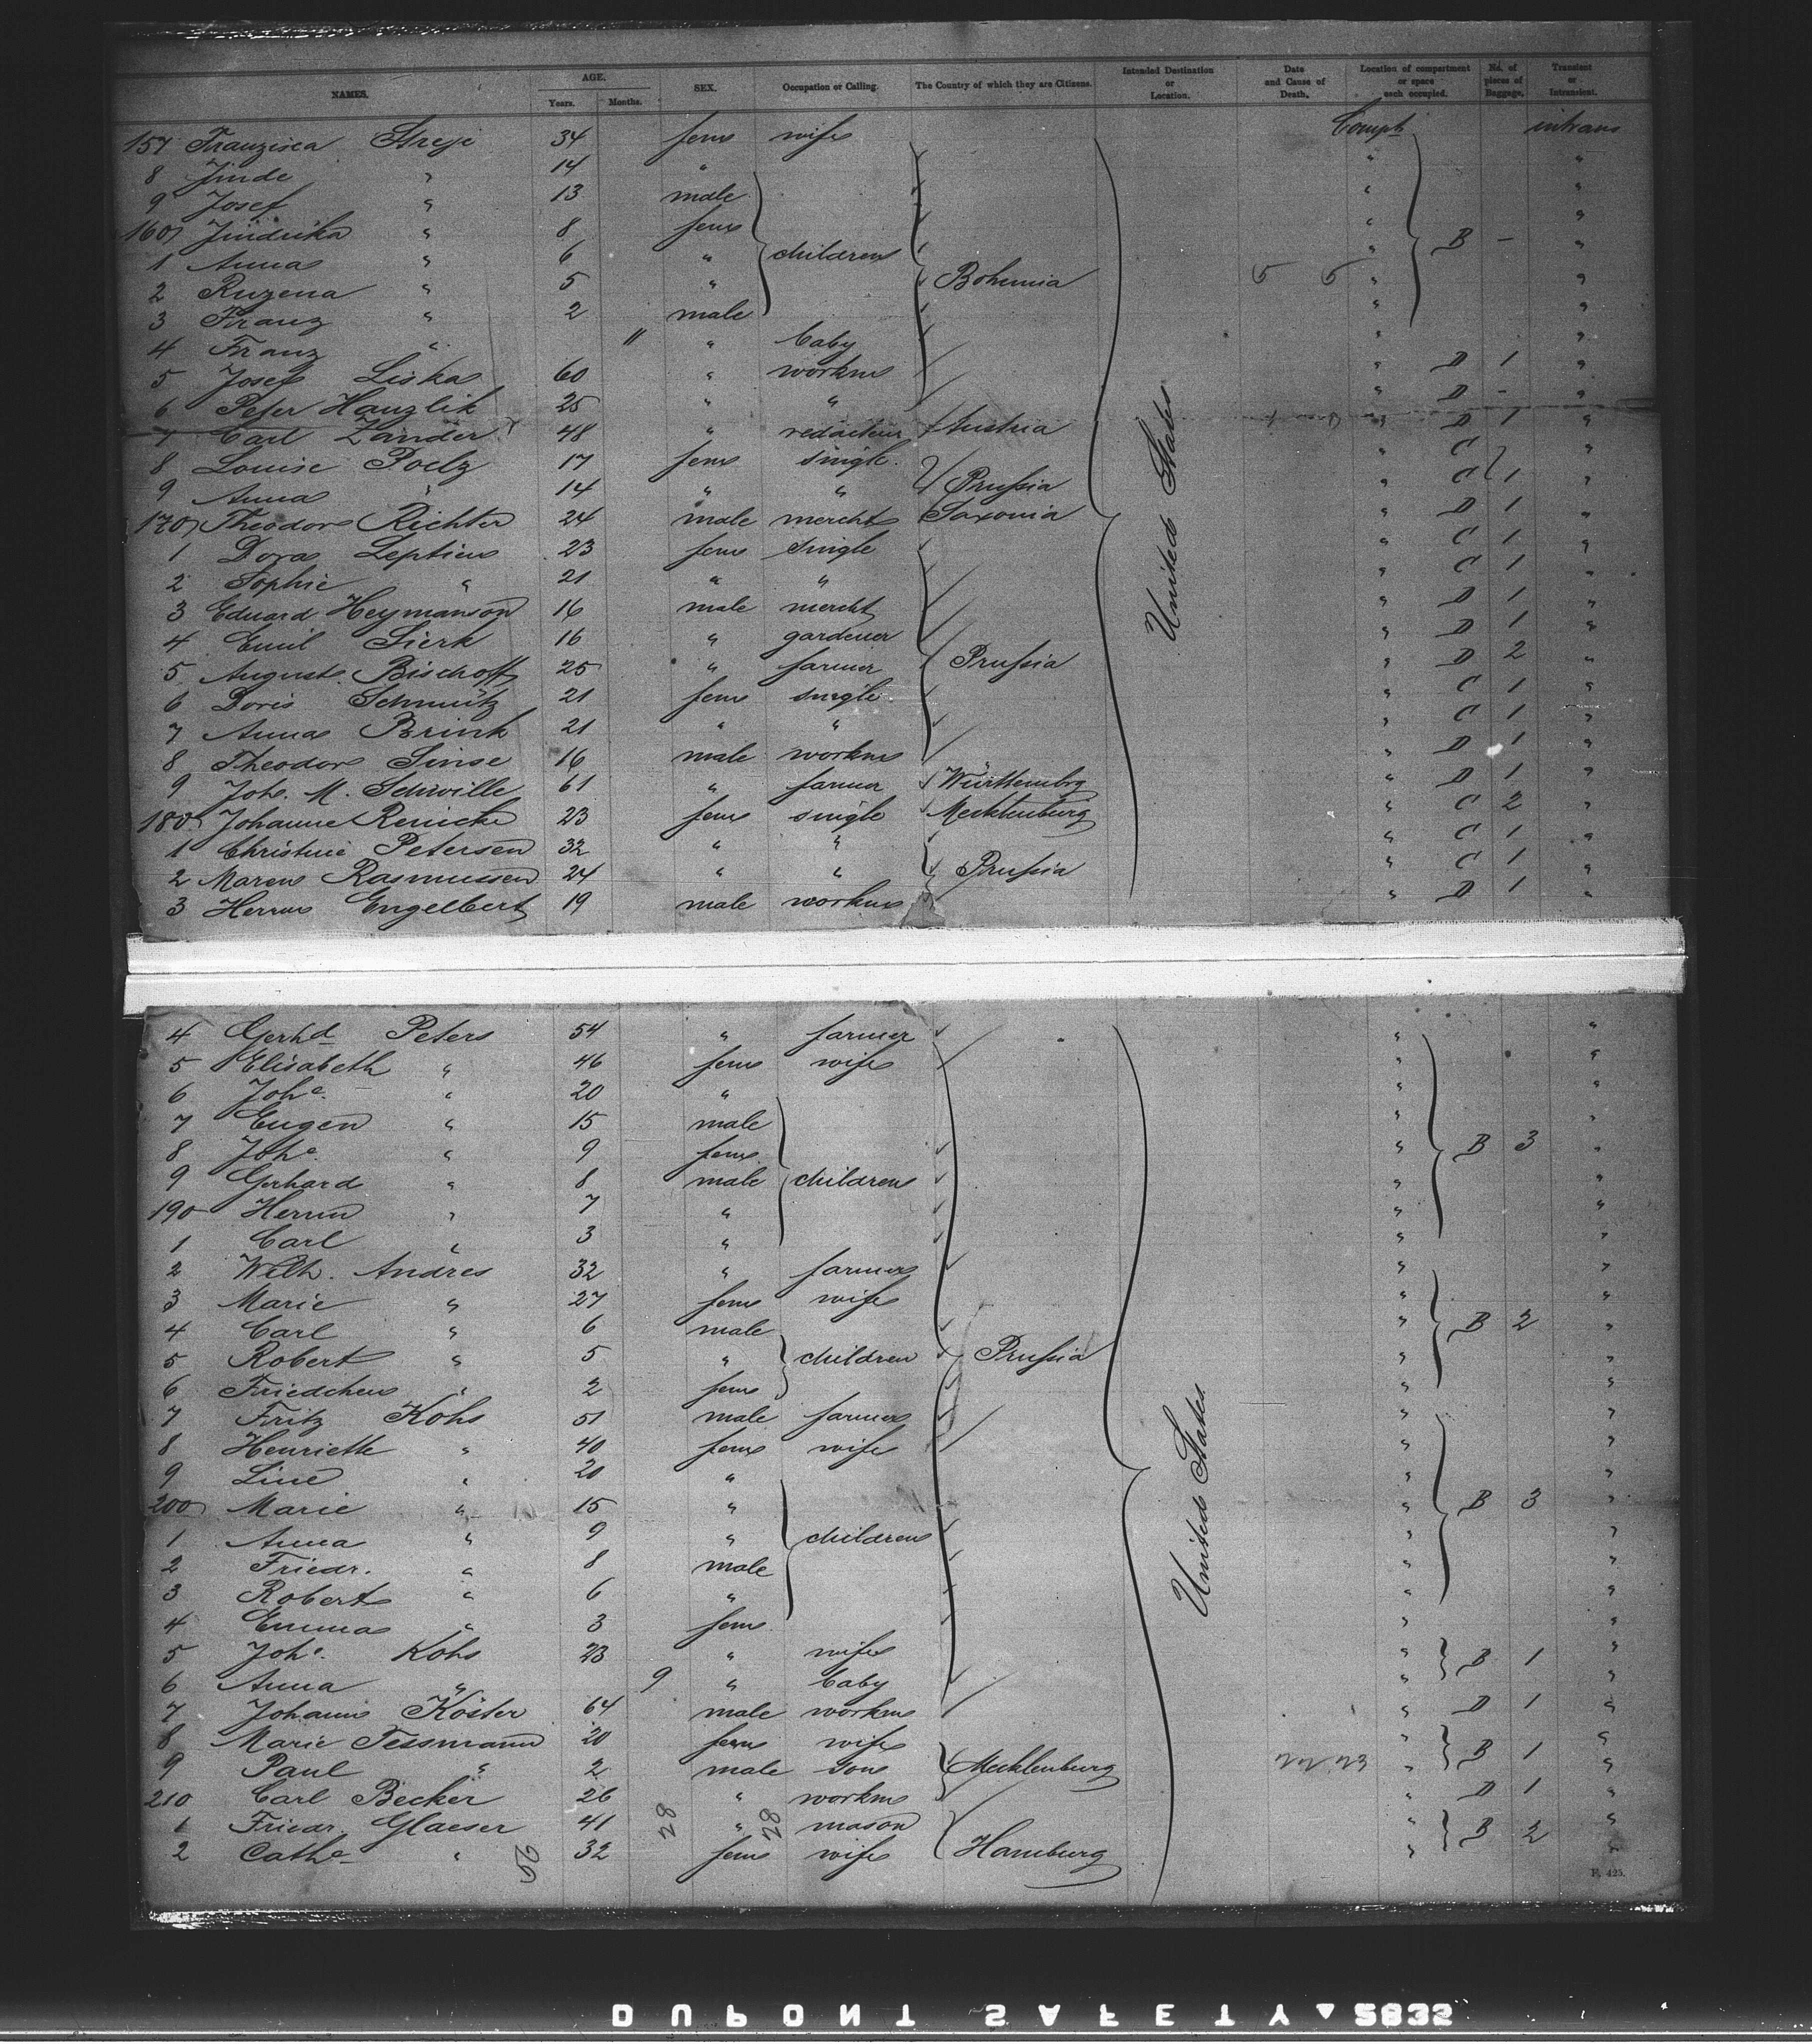 NAMES. AGE. Years. Months. SEX. Occupation or Calling. The Country of which they are Citizens. Intended Destination or Location. Date and Cause of Death. Location of compartment or space each occupied. No. of pieces of Baggage. Transient or Intransient.
157 Franzisca Streje 34 fem wife Compt intrans
8 Jinde " 14 " " "
9 Josef " 13 male " "
160 Jindrika " 8 fem " B - "
1 Anna " 6 " children " "
2 Ruzena " 5 " Bohemia 5 5 " "
3 Franz " 2 male " "
4 Franz " 11 " baby " "
5 Josef Liska 60 " workm " D 1 "
6 Peter Hanzlik 25 " " " D - "
7 Carl Zander 48 " redacteur Austria " D 1 "
8 Louise Poelz 17 fem single " C "
9 Anna " 14 " " Prussia " C 1 "
170 Theodor Richter 24 male mercht Saxonia " D 1 "
1 Dora Leptien 23 fem single " C 1 "
2 Sophie " 21 " " " C 1 "
3 Eduard Heymanson 16 male mercht " D 1 "
4 Emil Sierk 16 " gardener " D 1 "
5 August Bischoff 25 " farmer Prussia " D 2 "
6 Doris Schmütz 21 fem single " C 1 "
7 Anna Brink 21 " " " C 1 "
8 Theodor Sinse 16 male workm " D 1 "
9 Joh. M. Schwille 61 " farmer Württembrg " D 1 "
180 Johanne Reinicke 23 fem single Mecklenburg " C 2 "
1 Christine Petersen 32 " " " C 1 "
2 Maren Rasmussen 24 " " Prussia " C 1 "
3 Herrm Engelbert 19 male workm " D 1 "
United States
4 Gerhd Peters 54 " farmer " "
5 Elisabeth " 46 fem wife " "
6 Johe " 20 " " "
7 Eugen " 15 male " "
8 Johe " 9 fem " B 3 "
9 Gerhard " 8 male children " "
190 Herrm " 7 " " "
1 Carl " 3 " " "
2 Wilh. Andres 32 " farmer " "
3 Marie " 27 fem wife " "
4 Carl " 6 male " B 2 "
5 Robert " 5 " children Prussia " "
6 Friedchen " 2 fem " "
7 Fritz Kohs 51 male farmer " "
8 Henriette " 40 fem wife " "
9 Line " 20 " " "
200 Marie " 15 " " B 3 "
1 Anna " 9 " children " "
2 Friedr. " 8 male " "
3 Robert " 6 " " "
4 Emma " 3 fem " "
5 Johe. Kohs 23 " wife " B 1 "
6 Anna " 9 " baby " "
7 Johann Köster 64 male workm " D 1 "
8 Marie Tessmann 20 fem wife " "
9 Paul " 2 male son Mecklenburg 22 23 " B 1 "
210 Carl Becker 26 " workm " D 1 "
1 Friedr. Glaeser 41 28 " 28 mason " B 2 "
2 Cathe " 56 32 fem wife Hamburg " "
United States
F. 425.
DUPONT SAFETY 2832